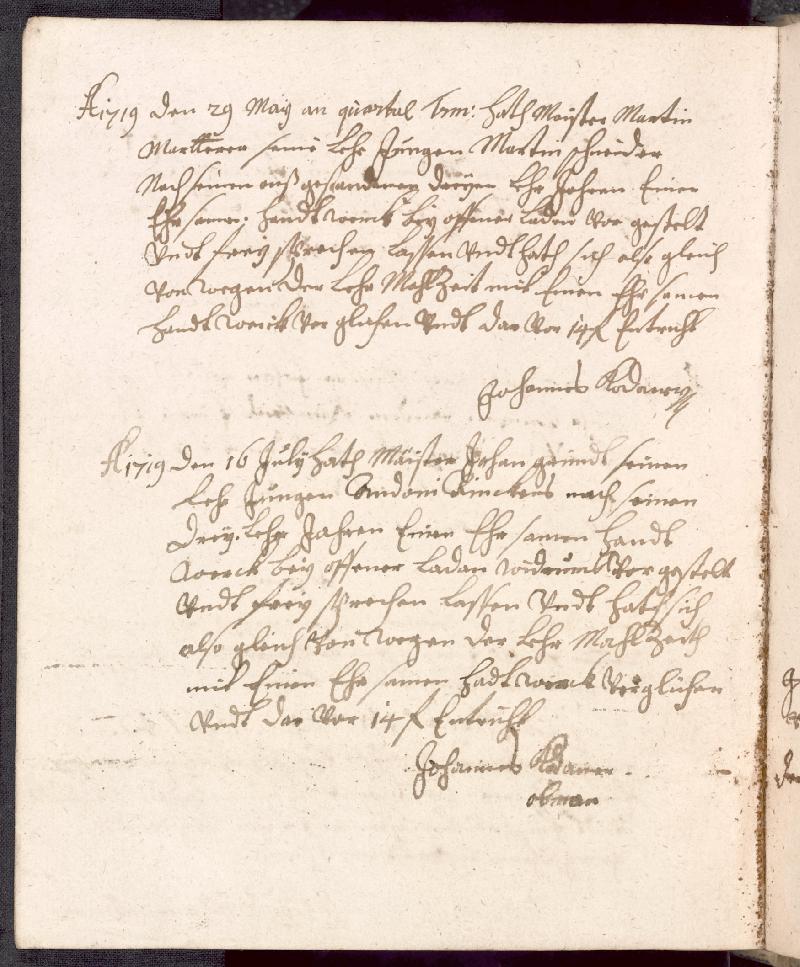 A 1719 den 29 May an quartal Trin: hath Meister Martin
seine Lehr Jungen Martin schneider
Nach seinen auß gestandenen dreyen Lehr Jahren Einen
Ehrsamen handtwerck bey offener laden vor gestelt
Undt frey sprechen lassen Undt hath sich also gleich
Von wegen der Lehr Mahlzeit mit Einen Ehrsamen
handtwerck verglichen Undt dar Vor 14 f Entricht
Johannes
A 1719 den 16 July hath Maister Johan seinen
Lehr Jungen Andoni nach seinen
Drey Lehr Jahren Einen Ehrsamen handt
werck bey offener laden widrumb Vor gestelt
Undt frey sprechen lassen Undt hath sich
also gleich Von wegen der Lehr Mahlzeith
mit Einen Ehrsamen hadtwerck verglichen
Undt dar Vor 14 f Entricht
Johannes
obman